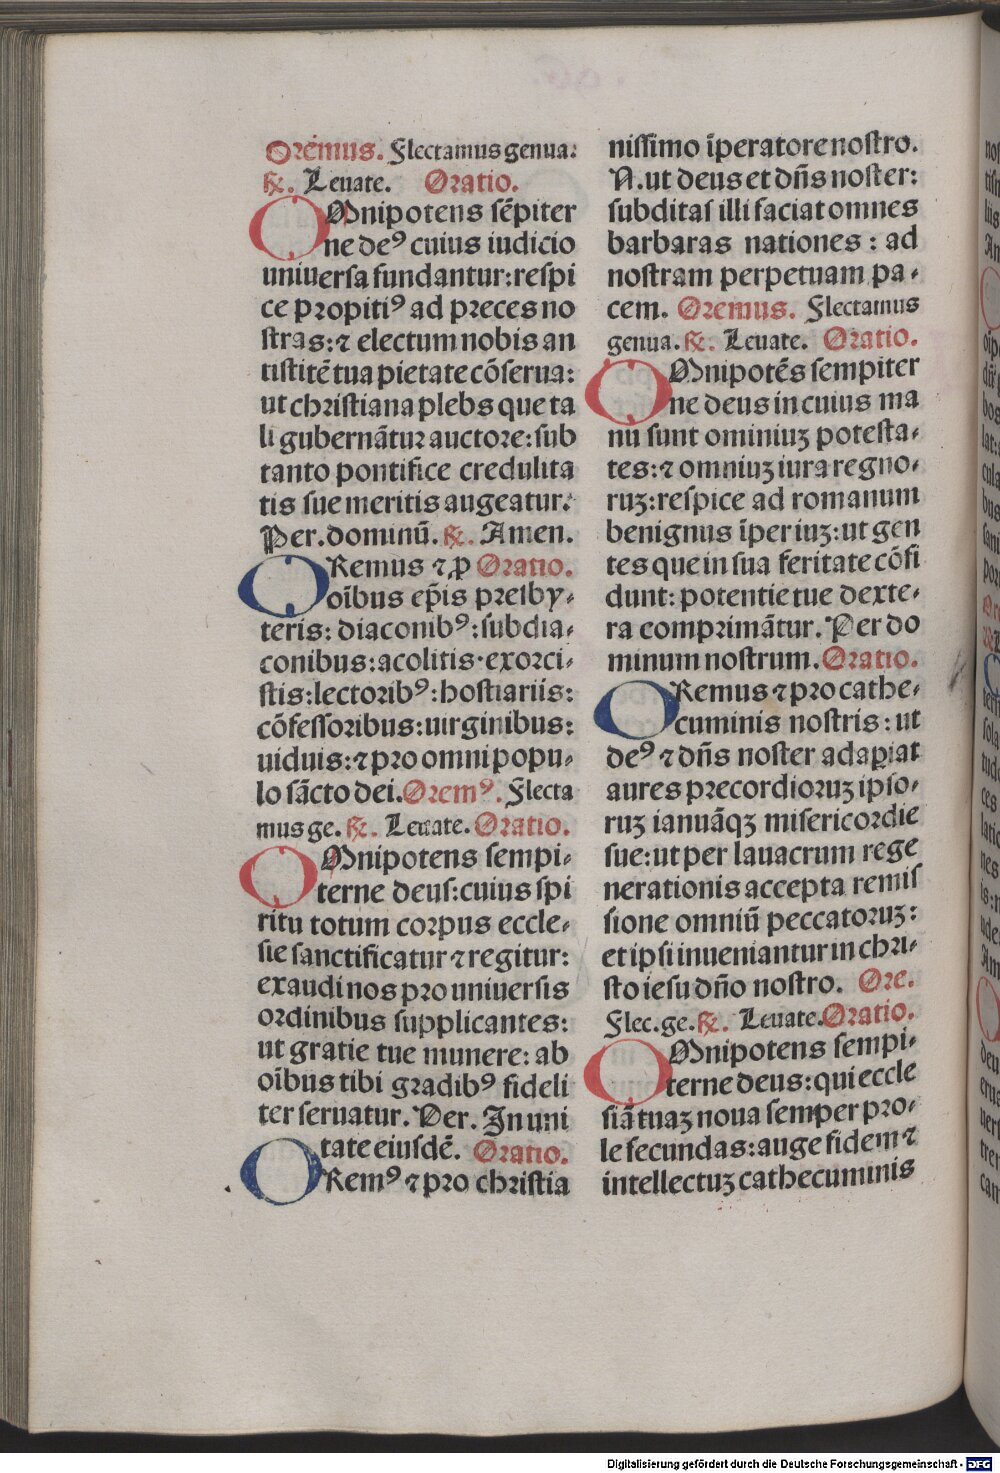 Oremus. Flectamus genua:
℟. Leuate. Oratio.
OMnipotens sēpiter
ne deꝰ cuius iudicio
uniuersa fundantur: respi
ce propitiꝰ ad preces no
stras: ⁊ electum nobis an
tistitē tua pietate cōserua:
ut christiana plebs que ta
li gubernātur auctore: sub
tanto pontifice credulita
tis sue meritis augeatur.
Per. dominū. ℟. Amen.
ORemus ⁊ ꝓ Oratio.
oībus ep̄is presby-
teris: diaconibꝰ: subdia-
conibus: acolitis. exorci-
stis: lectoribꝰ: hostiariis:
cōfessoribus: uirginibus:
uiduis: ⁊ pro omni popu-
lo sācto dei. Oremꝰ. Flecta
mus ge. ℟. Leuate. Oratio.
OMnipotens sempi-
terne deus: cuius spi
ritu totum corpus eccle-
sie sanctificatur ⁊ regitur:
exaudi nos pro uniuersis
ordinibus supplicantes:
ut gratie tue munere: ab
oībus tibi gradibꝰ fideli
ter seruatur. Per. In uni
tate eiusdē. Oratio.
ORemꝰ ⁊ pro christia
nissimo īperatore nostro.
N. ut deus et dn̄s noster:
subditas illi faciat omnes
barbaras nationes: ad
nostram perpetuam pa-
cem. Oremus. Flectamus
genua. ℟. Leuate. Oratio.
OMnipotēs sempiter
ne deus in cuius ma
nu sunt ominiuꝫ potesta-
tes: ⁊ omniuꝫ iura regno-
ruꝫ: respice ad romanum
benignus īperiuꝫ: ut gen
tes que in sua feritate cōfi
dunt: potentie tue dexte-
ra comprimātur. Per do
minum nostrum. Oratio.
ORemus ⁊ pro cathe-
cuminis nostris: ut
deꝰ ⁊ dn̄s noster adapiat
aures precordioruꝫ ipso-
ruꝫ ianuāqꝫ misericordie
sue: ut per lauacrum rege
nerationis accepta remis
sione omniū peccatoruꝫ:
et ipsi inueniantur in chri-
sto iesu dn̄o nostro. Ore.
Flec. ge. ℟. Leuate. Oratio.
OMnipotens sempi-
terne deus: qui eccle
siā tuaꝫ noua semper pro-
le fecundas: auge fidem ⁊
intellectuꝫ cathecuminis
Digitalisierung gefördert durch die Deutsche Forschungsgemeinschaft - DFG